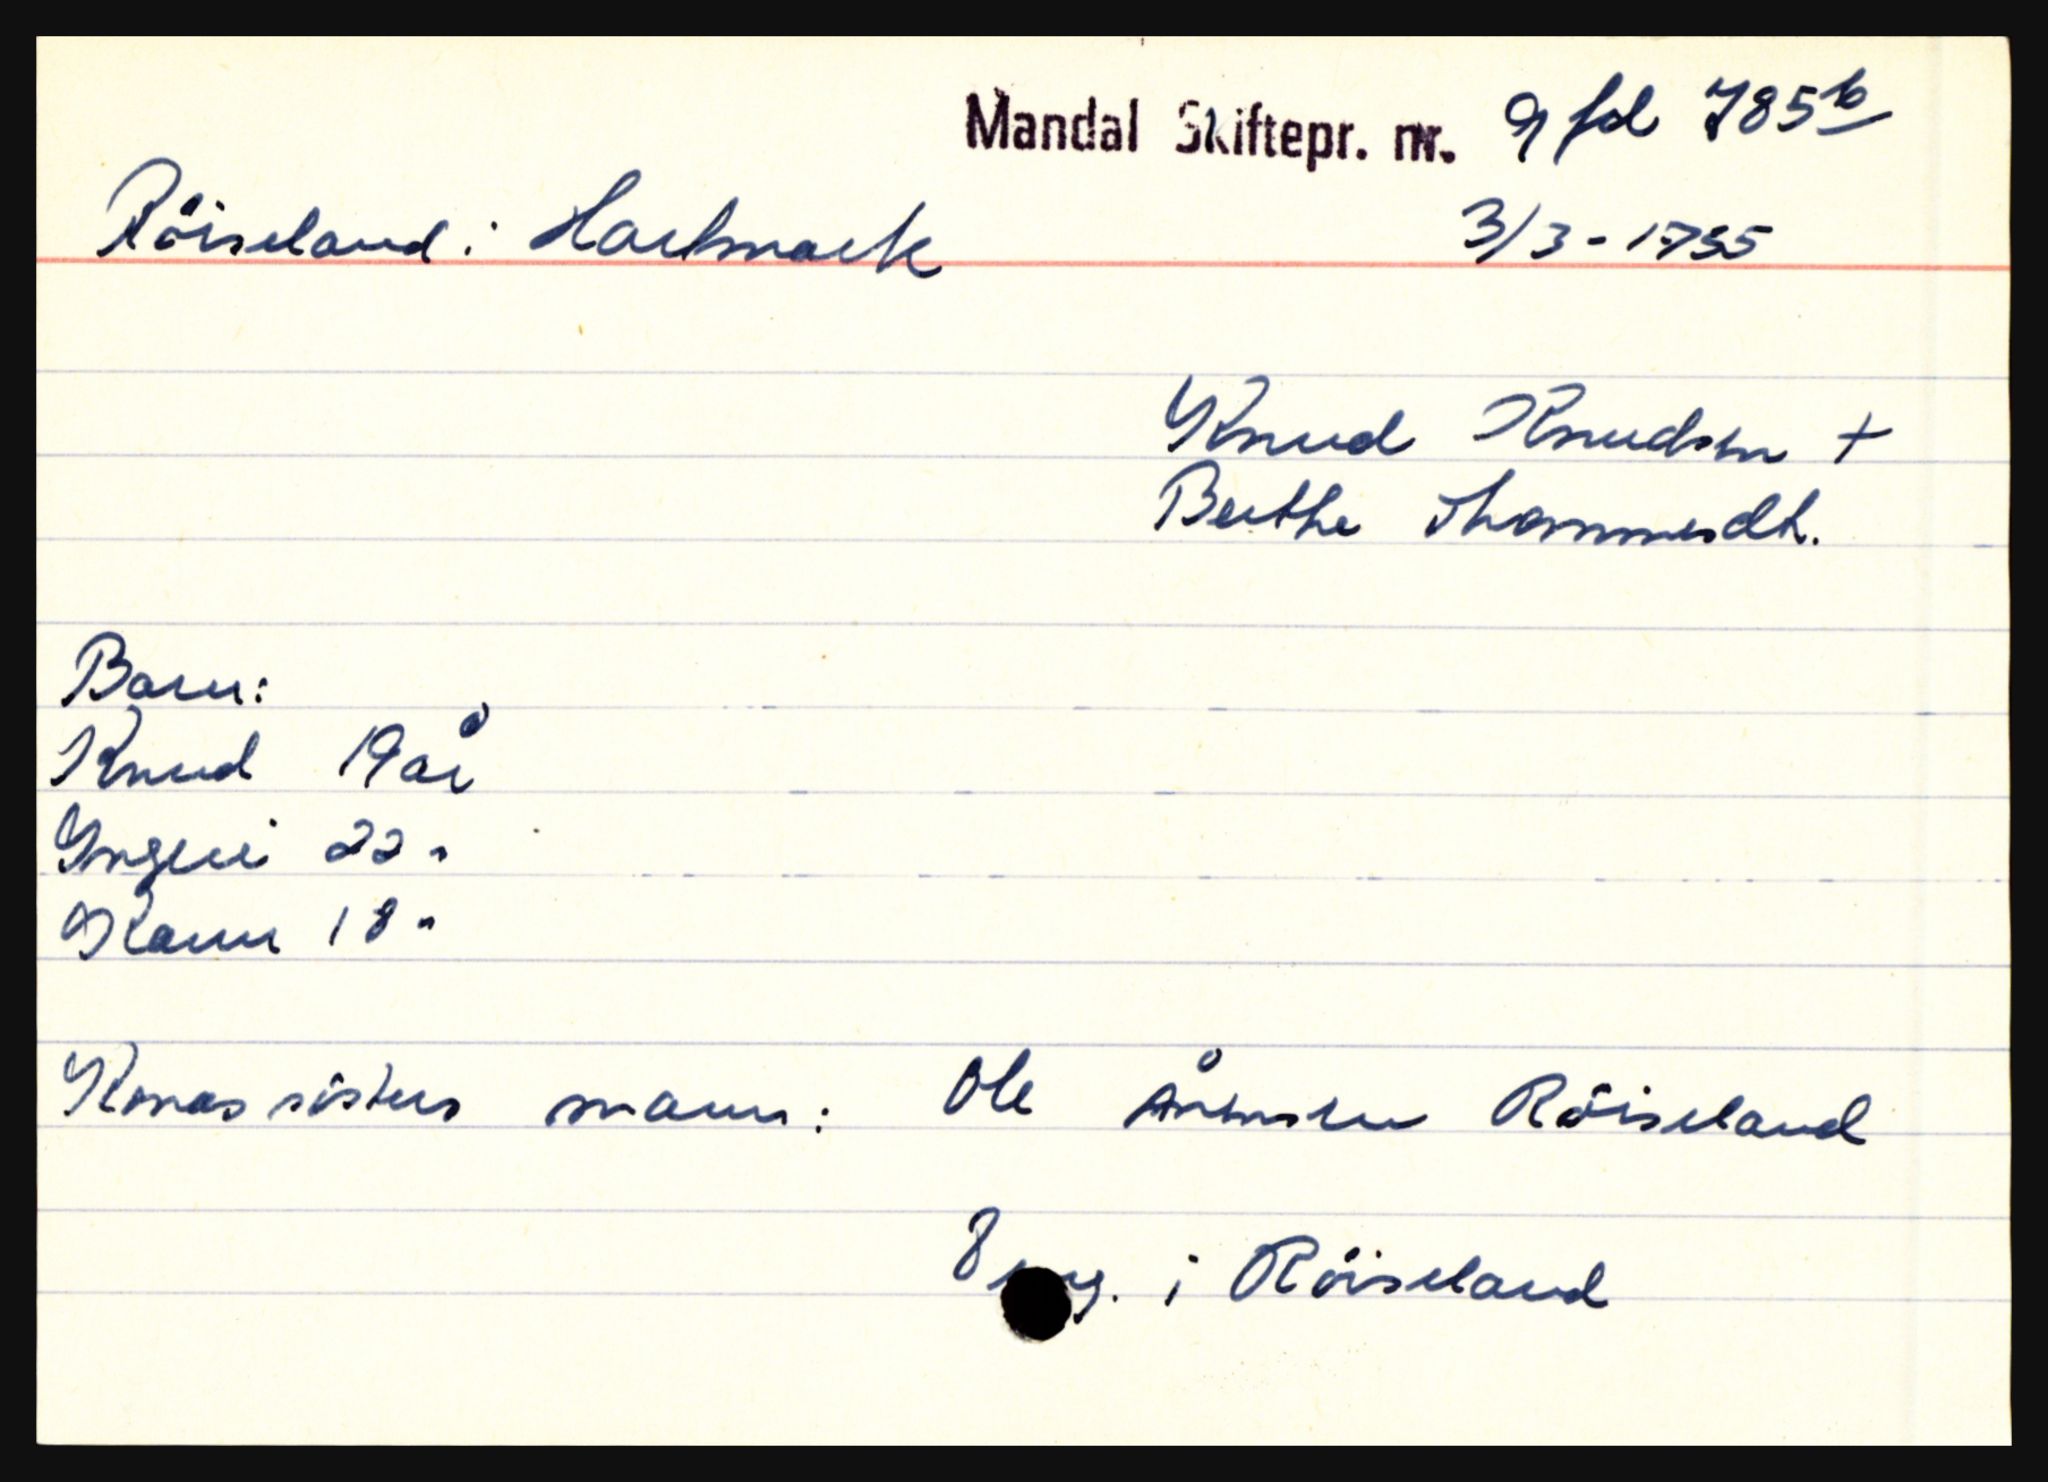 Mandal Skiftepr. nr. 9 fol 785b
Röiseland i Hartmark 3/3-1755
Knud Knudsen +
Berthe Thommesdt.
Barn:
Knud 19 år
Yngeri 22 "
Karen 18 "
Konas sösters mann: Ole Ånensen Röiseland
8 eng. i Röiseland